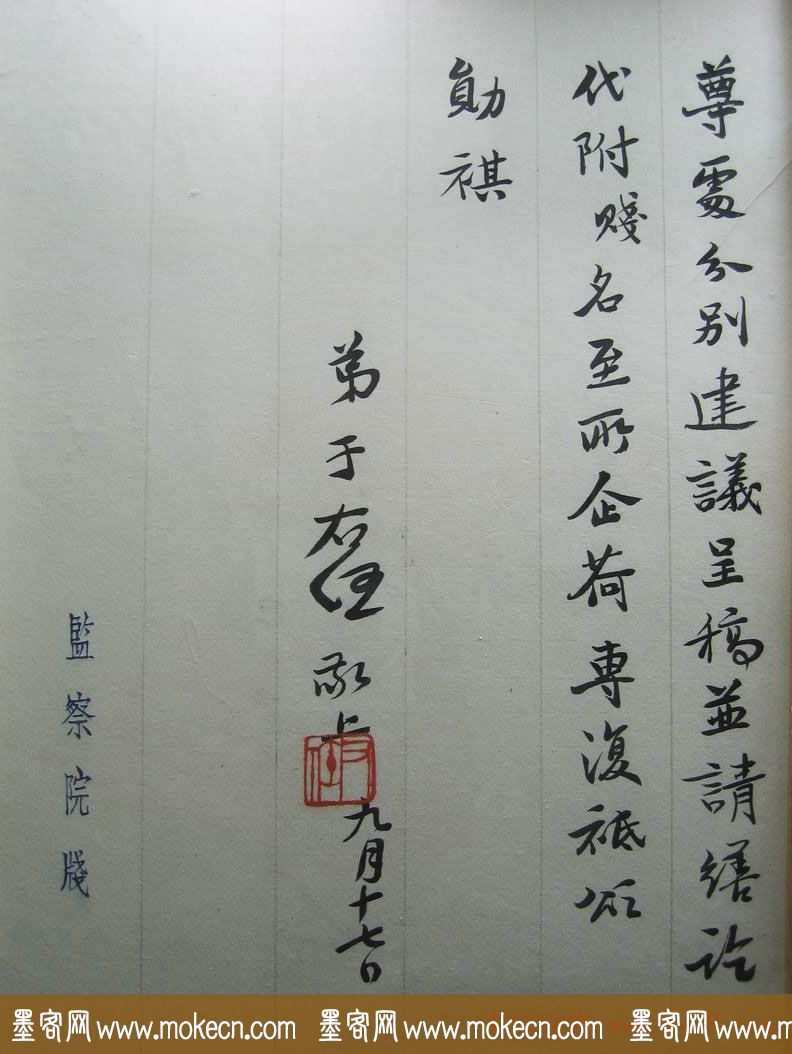 尊處分別建議呈稿並請繕訖
代附賤名至所企荷專復祗頌
勛祺
弟于右任敬上
九月十七日
監察院牋
墨客网 www.mokecn.com 墨客网 www.mokecn.com 墨客网 www.mokecn.com